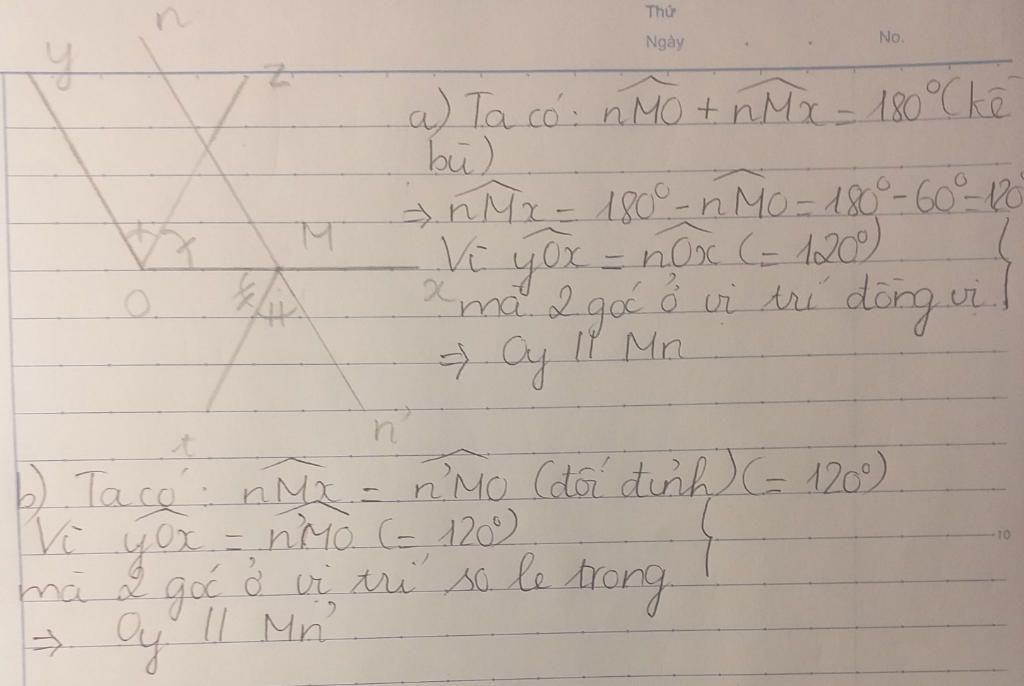 Thứ
Ngày
No.
n
y
z
O
M
x
t
n'
a) Ta có: nMO + nMx = 180° (kề
bù)
⇒ nMx = 180° - nMO = 180° - 60° = 120°
Vì yOx = nOx (= 120°)
mà 2 góc ở vị trí đồng vị
⇒ Oy // Mn
b) Ta có: nMx = n'MO (đối đỉnh) (= 120°)
Vì yOx = n'MO (= 120°)
mà 2 góc ở vị trí so le trong
⇒ Oy // Mn'
10